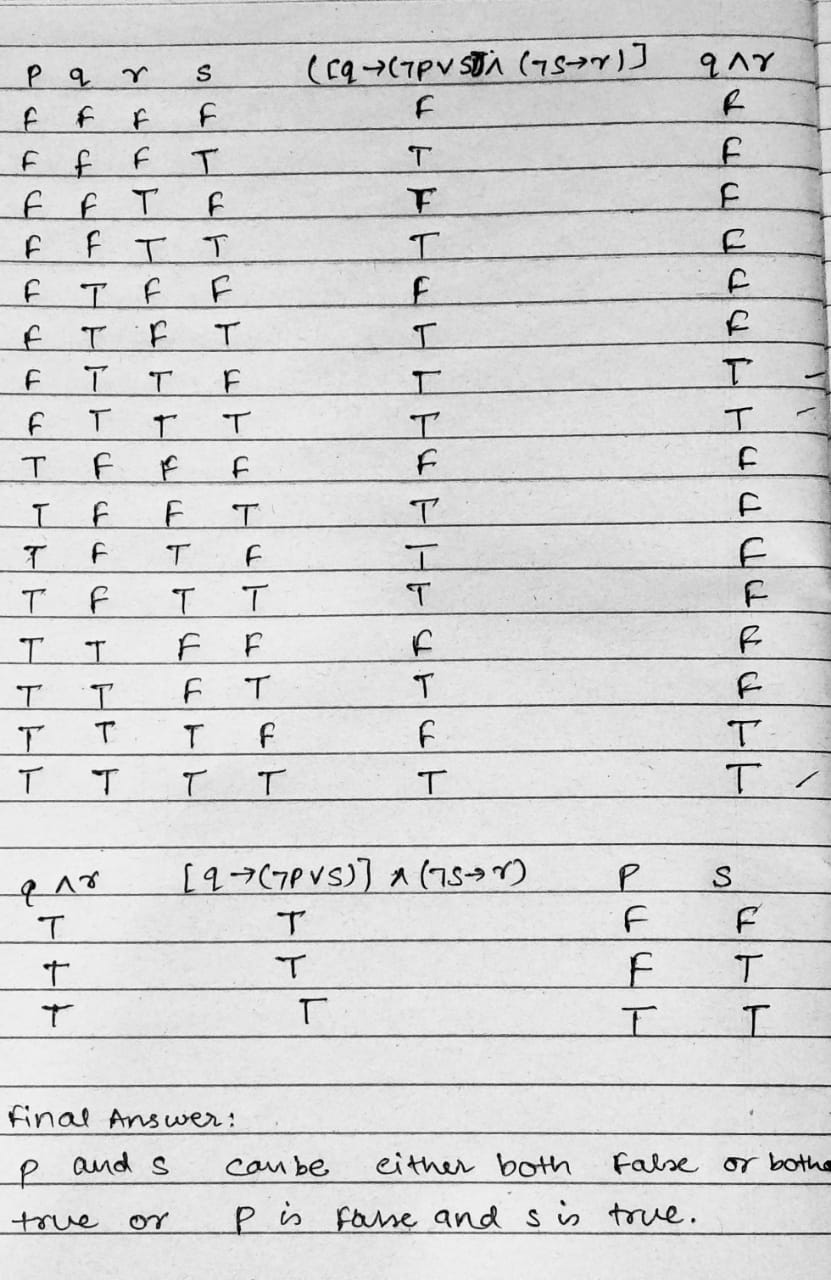 p q r s ([q→(¬p∨s)]∧(¬s→r)] q∧r
F F F F F F
F F F T T F
F F T F F F
F F T T T F
F T F F F F
F T F T T F
F T T F T T
F T T T T T
T F F F F F
T F F T T F
T F T F T F
T F T T T F
T T F F F F
T T F T T F
T T T F F T
T T T T T T
q∧r [q→(¬p∨s)] ∧ (¬s→r) p s
T T F F
T T F T
T T T T
Final Answer:
p and s can be either both False or both
true or p is false and s is true.